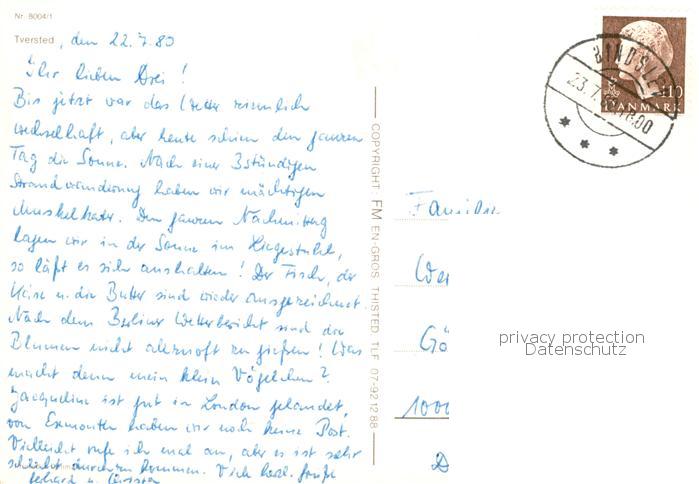 Nr. 8004/1
Tversted, den 22.7.80
Ihr lieben Drei!
Bis jetzt war das Wetter ziemlich
wechselhaft, aber heute schien den ganzen
Tag die Sonne. Nach einer 3stündigen
Strandwanderung haben wir mächtigen
Muskelkater. Den ganzen Nachmittag
lagen wir in der Sonne im Liegestuhl,
so läßt es sich aushalten! Der Fisch, der
Käse u. die Butter sind wieder ausgezeichnet.
Nach dem Berliner Wetterbericht sind die
Blumen nicht allzuoft zu gießen! Was
macht denn mein klein Vögelchen?
Jacqueline ist gut in London gelandet,
von Exmouth haben wir noch keine Post.
Vielleicht rufe ich mal an, aber es ist sehr
schlecht durchzukommen. Viele herzl. Grüße
COPYRIGHT FM EN-GROS THISTED. TLF. 07-92 12 88
BINDSLEV
23.7.
110
DANMARK
Familie
Gö
1000
privacy protection
Datenschutz